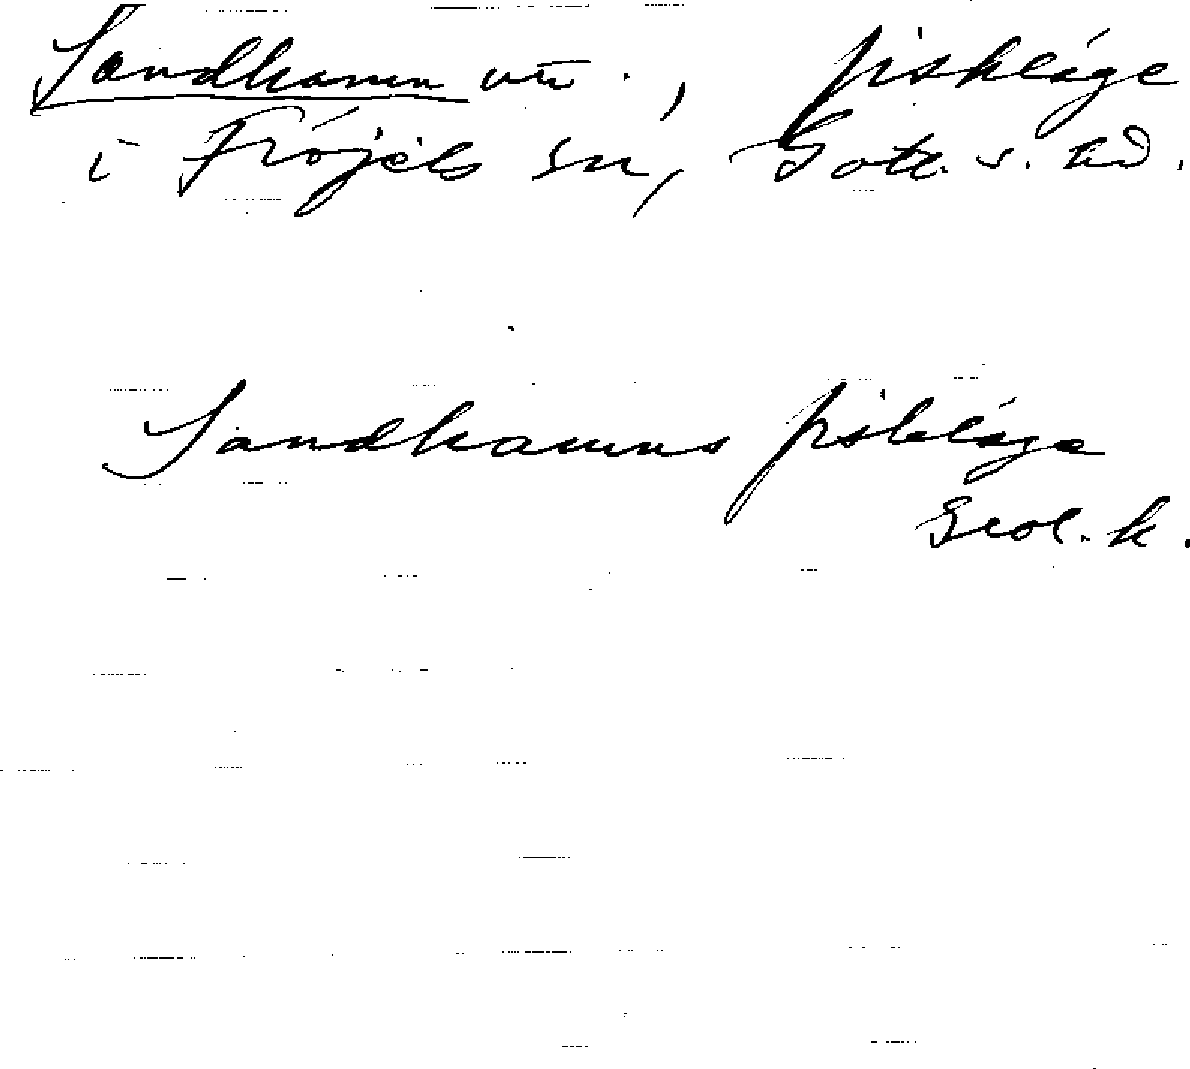 Sandhamn utm., fiskeläge
i Fröjels sn, Gotl. s. hd.
Sandhamns fiskeläge
Geol. k.